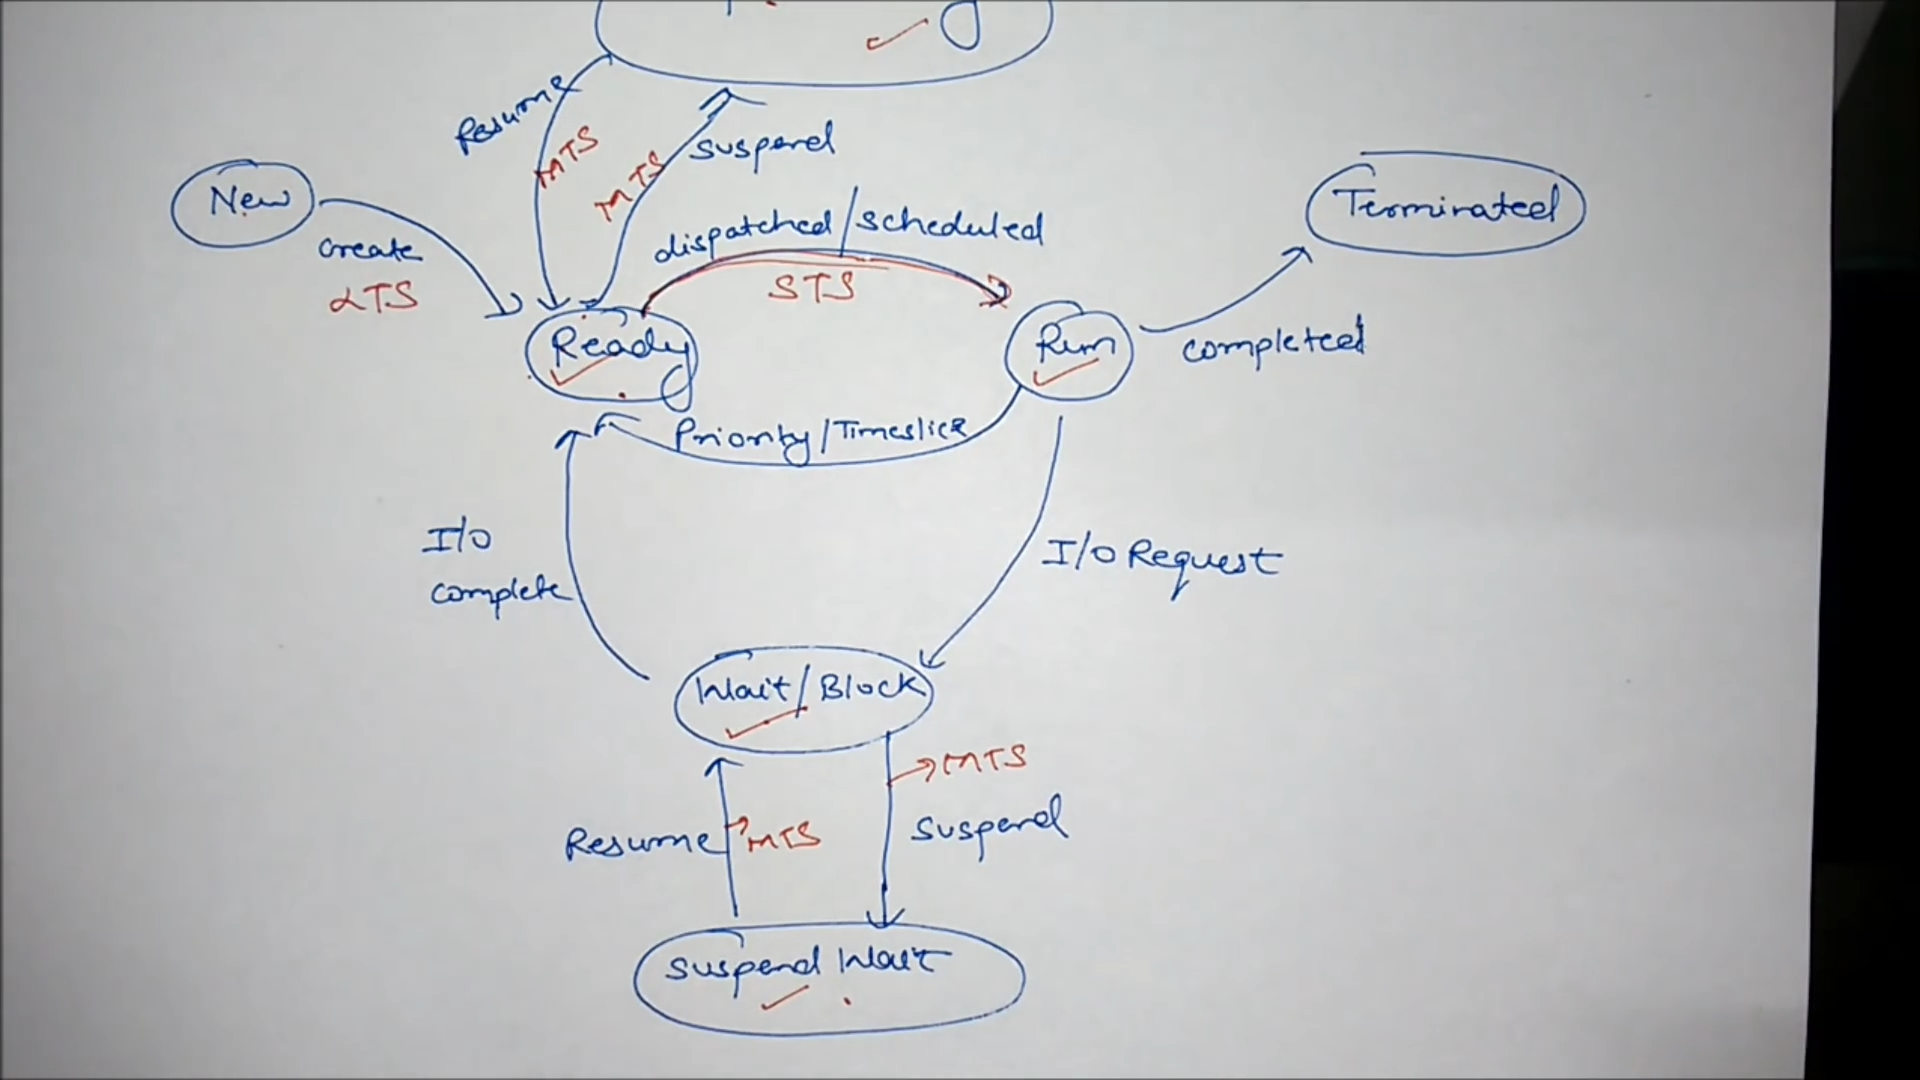 Resume
MTS
MTS
suspend
New
create
LTS
dispatched/scheduled
STS
Terminated
Ready
Run
completed
Priority/Timeslice
I/O
complete
I/O Request
Wait/Block
MTS
Resume
MTS
Suspend
Suspend Wait